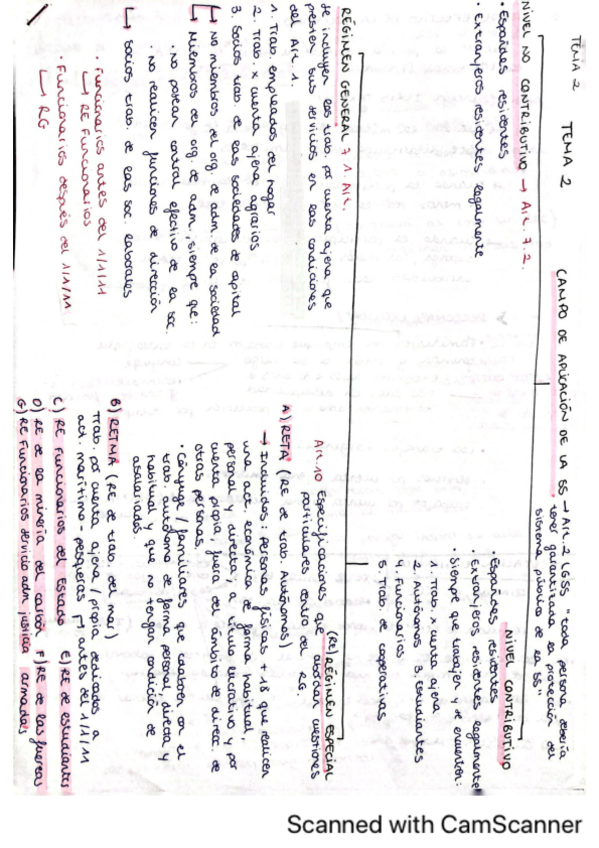 TEMA 2
TEMA 2
CAMPO DE APLICACIÓN DE LA SS → Art. 2 LGSS "toda persona debería
tener garantizada la protección del
sistema público de la SS"
NIVEL NO CONTRIBUTIVO → Art. 7.2.
· Españoles residentes
· Extranjeros residentes legalmente
NIVEL CONTRIBUTIVO
· Españoles residentes
· Extranjeros residentes legalmente
· Siempre que trabajen y se encuentren:
1. Trab. x cuenta ajena
2. Autónomos 3. Estudiantes
4. Funcionarios
5. Trab. de cooperativas
RÉGIMEN GENERAL 7.1. Art.
Se incluyen los trab. por cuenta ajena que
presten sus servicios en las condiciones
del Art. 1.
1. Trab. empleados del hogar
2. Trab. x cuenta ajena agrarios
3. Socios trab. de las sociedades de capital
↳ No miembros del org. de adm. de la sociedad
↳ Miembros del org. de adm., siempre que:
· no posean control efectivo de la soc.
· no realicen funciones de dirección
↳ Socios trab. de las soc. laborales
· Funcionarios antes del 1/1/11
↳ RE Funcionarios
· Funcionarios después del 1/1/11
↳ RG
(RE) RÉGIMEN ESPECIAL
Art. 10 Especificaciones que abordan cuestiones
particulares dentro del RG.
A) RETA (RE de trab. Autónomos)
→ Incluidos: personas físicas + 18 que realicen
una act. económica de forma habitual,
personal y directa a título lucrativo y por
cuenta propia, fuera del ámbito de direcc. de
otras personas.
· Cónyuge / familiares que colaboren con el
trab. autónomo de forma personal, directa y
habitual y que no tengan condición de
asalariados.
B) RETMA (RE de trab. del mar)
Trab. por cuenta ajena / propia dedicados a
act. marítimo-pesqueras
antes del 1/1/11
C) RE Funcionarios del Estado E) RE de estudiantes
D) RE de la minería del carbón F) RE de las fuerzas
G) RE Funcionarios servicio adm. justicia armadas
Scanned with CamScanner